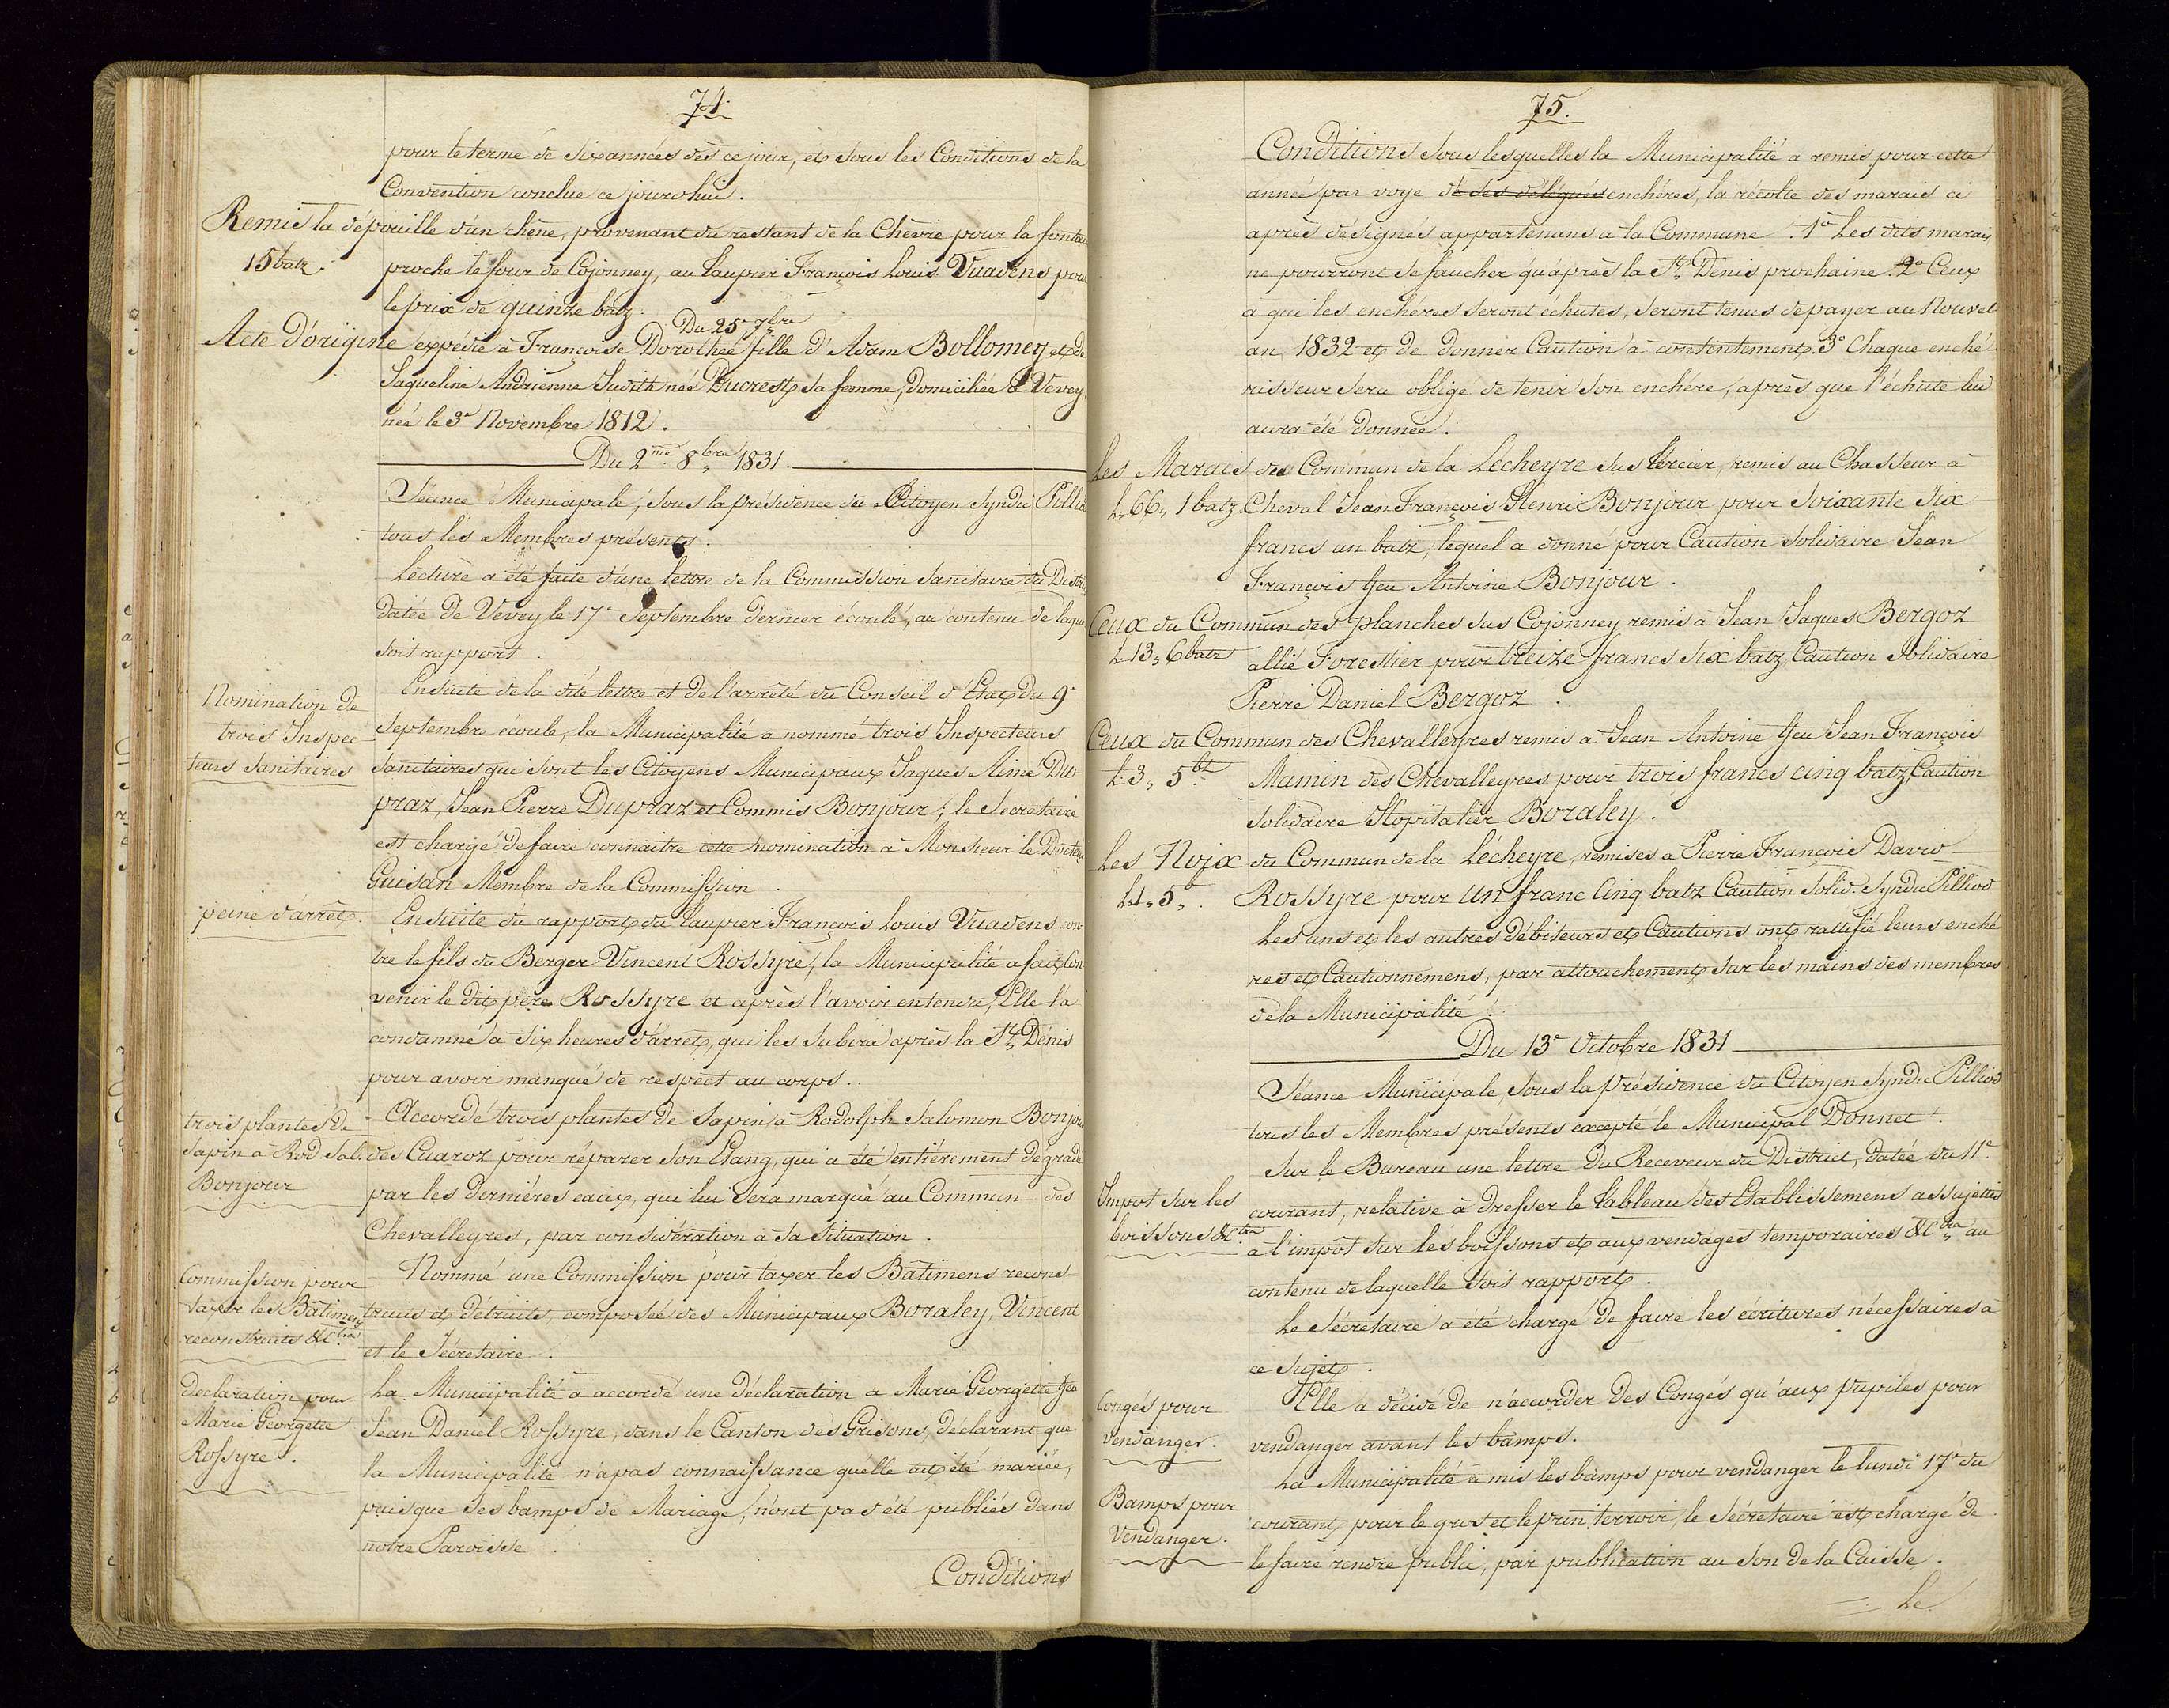 74.
pour le terme de six années dès ce jour, et sous les Conditions de la
Convention conclue ce jourdhui.
Remis la dépouille d'un chêne, provenant du restant de la Chèvre pour la fontai
15 batz. proche le four de Cojonney, au taupier François Louis Vuadens pour
le prix de quinze batz.
Du 25e 7bre
Acte d'origine expédié à Françoise Dorothée fille d'Adam Bollomey et de
Jaqueline Andrienne Judith née Ducrest sa femme, domiciliée à Vevey
née le 3e Novembre 1812.
Du 2me 8bre 1831.
Séance Municipale, sous la présidence du Citoyen Syndic Pilliod
tous les Membres présents.
Lecture a été faite d'une lettre de la Commission Sanitaire du Distri
datée de Vevey le 17e Septembre dernier écoulé, au contenu de laque
soit rapport.
Nomination de
trois Inspec
teurs Sanitaires
Ensuite de la dite lettre et de l'arrêté du Conseil d'Etat du 9e
Septembre écoulé, la Municipalité a nommé trois Inspecteurs
Sanitaires qui sont les Citoyens Municipaux Jaques Aimé Du-
praz, Jean Pierre Dupraz et Commis Bonjour, le Secrétaire
est chargé de faire connaitre cette nomination à Monsieur le Docteur
Guisan Membre de la Commission.
peine d'arrêt.
Ensuite du rapport du taupier François Louis Vuadens con
tre le fils du Berger Vincent Rossyre, la Municipalité a fait Con
venir le dit père Rossyre et après l'avoir entendu, Elle l'a
condamné à six heures d'arrêt, qui les subira après la St. Dénis
pour avoir manqué de respect au corps.
trois plantes de
Sapin à Rod. Sal.
Bonjour
Accordé trois plantes de Sapin à Rodolph Salomon Bonjou
des Cuaroz pour réparer son Etang, qui a été entièrement dégradé
par les dernières eaux, qui lui sera marqué au Commun des
Chevalleyres, par considération à sa situation.
Commission pour
taxer les Bâtimens
reconstruits &c tra
Nommé une Commission pour taxer les Bâtimens recons
truits et détruits, composée des Municipaux Boraley, Vincent
et le Sécretaire.
Déclaration pour
Marie Georgette
Rossyre.
La Municipalité a accordé une déclaration à Marie Georgette feu
Jean Daniel Rossyre, dans le Canton des Grisons, déclarant que
la Municipalité n'a pas connaissance quelle ait été mariée,
puisque ses bamps de Mariage, n'ont pas été publiés dans
notre Paroisse.
Conditions
75.
Conditions sous lesquelles la Municipalité a remis pour cette
année par voye de ses délégués enchères, la récolte des marais ci
après désignés appartenans à la Commune. 1o Les dits marais
ne pourront se faucher qu'après la St. Dénis prochaine. 2o Ceux
à qui les enchères seront échutes, seront tenus de payer au Nouvel
an 1832 et de donner Caution à contentement. 3o Chaque enché
risseur sera obligé de tenir son enchére, après que l'échute lui
aura été donnée.
Les Marais du Commun de la Lécheyre sus Mercier, remis au Chasseur à
L. 66, 1 batz. Cheval Jean François Henri Bonjour pour soixante six
francs un batz, lequel a donné pour Caution solidaire Jean
François feu Antoine Bonjour.
Ceux du Commun des planches sus Cojonney remis à Jean Jaques Bergoz
L. 13, 6 batz allié Forestier pour treize francs six batz, Caution solidaire
Pierre Daniel Bergoz.
Ceux du Commun des Chevalleyres remis à Jean Antoine feu Jean François
L. 3, 5 bz. Mamin des Chevalleyres pour trois francs cinq batz, Caution
solidaire Hopitalier Boraley.
Les Noix du Commun de la Lécheyre, remises à Pierre François David
L. 1, 5. Rossyre pour un franc cinq batz Caution Solid. Syndic Pilliod
Les uns et les autres débiteurs et Cautions ont rattifié leurs enché
res et Cautionnemens, par attouchement sur les mains des membres
de la Municipalité.
Du 13e Octobre 1831
Séance Municipale sous la présidence du Citoyen Syndic Pilliod
tous les Membres présents excepté le Municipal Donnet.
Impot sur les
boissons &c tra
Sur le Bureau une lettre du Receveur du District, datée du 11e
courant, relative à dresser le tableau des Etablissemens assujettis
à l'impôt sur les boissons et aux vendages temporaires &c tra au
contenu de laquelle soit rapport.
Le Sécrétaire a été chargé de faire les écritures nécessaires à
ce sujet.
Congés pour
vendanger.
Elle a décidé de n'accorder des Congés qu'aux pupiles pour
vendanger avant les bamps.
Bamps pour
Vendanger.
La Municipalité a mis les bamps pour vendanger le lundi 17e du
courant, pour le gros et le prin terroir, le sécrétaire est chargé de
le faire rendre public, par publication au son de la Caisse.
Le